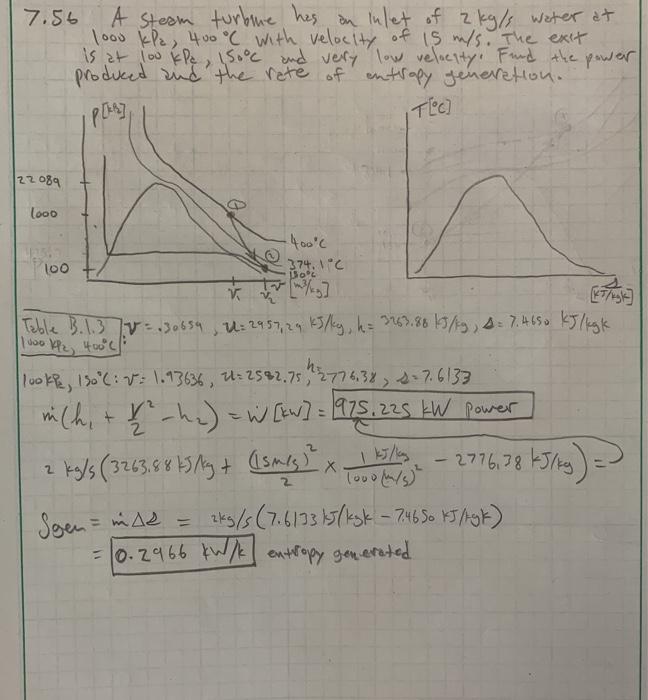 7.56 A steam turbine has an inlet of 2 kg/s water at
1000 kPa, 400°C with velocity of 15 m/s. The exit
is at 100 kPa, 150°C and very low velocity. Find the power
produced and the rate of entropy generation.
P[kPa]
22089
1000
100
①
②
400°C
374.1°C
150°C
v₁ v₂ v [m³/kg]
T[°C]
s
[kJ/kgK]
Table B.1.3
1000 kPa, 400°C: v = .30659, u = 2957.29 kJ/kg, h = 3263.88 kJ/kg, s = 7.4650 kJ/kgk
100 kPa, 150°C: v = 1.93636, u = 2582.75, h = 2776.38, s = 7.6133
ṁ(h₁ + V²/2 - h₂) = Ẇ [kW] = 975.225 kW power
2 kg/s (3263.88 kJ/kg + (15m/s)²/2 × 1 kJ/kg / 1000 (m/s)² - 2776.38 kJ/kg) =
Sgen = ṁΔs = 2kg/s (7.6133 kJ/kgk - 7.4650 kJ/kgk)
= 0.2966 kW/k entropy generated